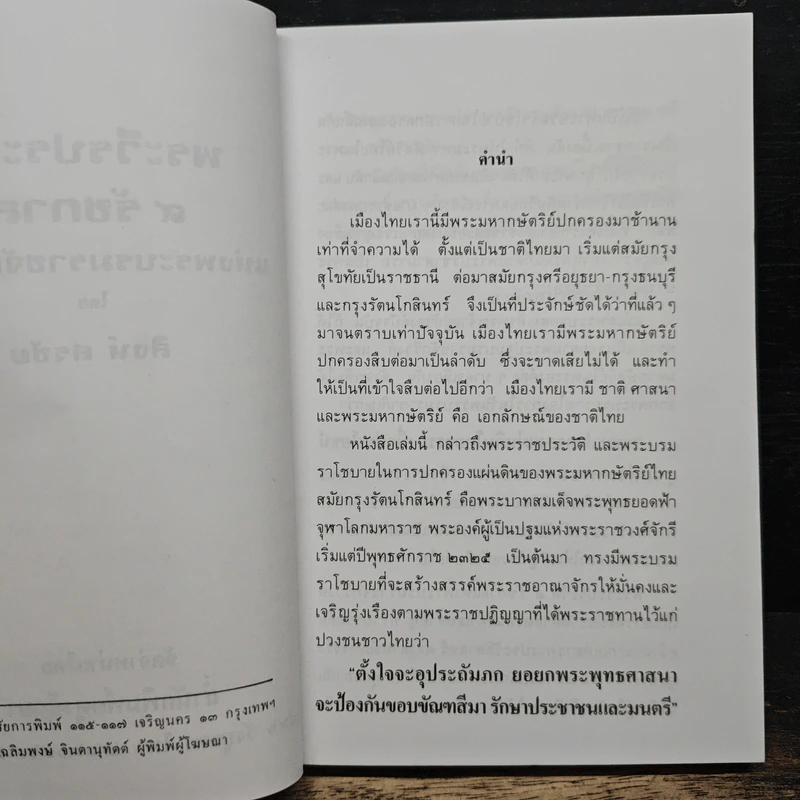 ัยการพิมพ์ ๑๑๕-๑๑๗ เจริญนคร ๑๓ กรุงเทพฯ
ฉลิมพงษ์ จินดานุทัตต์ ผู้พิมพ์ผู้โฆษณา
คำนำ
เมืองไทยเรานี้มีพระมหากษัตริย์ปกครองมาช้านาน
เท่าที่จำความได้ ตั้งแต่เป็นชาติไทยมา เริ่มแต่สมัยกรุง
สุโขทัยเป็นราชธานี ต่อมาสมัยกรุงศรีอยุธยา-กรุงธนบุรี
และกรุงรัตนโกสินทร์ จึงเป็นที่ประจักษ์ชัดได้ว่าที่แล้ว ๆ
มาจนตราบเท่าปัจจุบัน เมืองไทยเรามีพระมหากษัตริย์
ปกครองสืบต่อมาเป็นลำดับ ซึ่งจะขาดเสียไม่ได้ และทำ
ให้เป็นที่เข้าใจสืบต่อไปอีกว่า เมืองไทยเรามี ชาติ ศาสนา
และพระมหากษัตริย์ คือ เอกลักษณ์ของชาติไทย
หนังสือเล่มนี้ กล่าวถึงพระราชประวัติ และพระบรม
ราโชบายในการปกครองแผ่นดินของพระมหากษัตริย์ไทย
สมัยกรุงรัตนโกสินทร์ คือพระบาทสมเด็จพระพุทธยอดฟ้า
จุฬาโลกมหาราช พระองค์ผู้เป็นปฐมแห่งพระราชวงศ์จักรี
เริ่มแต่ปีพุทธศักราช ๒๓๒๕ เป็นต้นมา ทรงมีพระบรม
ราโชบายที่จะสร้างสรรค์พระราชอาณาจักรให้มั่นคงและ
เจริญรุ่งเรืองตามพระราชปฏิญญาที่ได้พระราชทานไว้แก่
ปวงชนชาวไทยว่า
“ตั้งใจจะอุประถัมภก ยอยกพระพุทธศาสนา
จะป้องกันขอบขัณฑสีมา รักษาประชาชนและมนตรี”